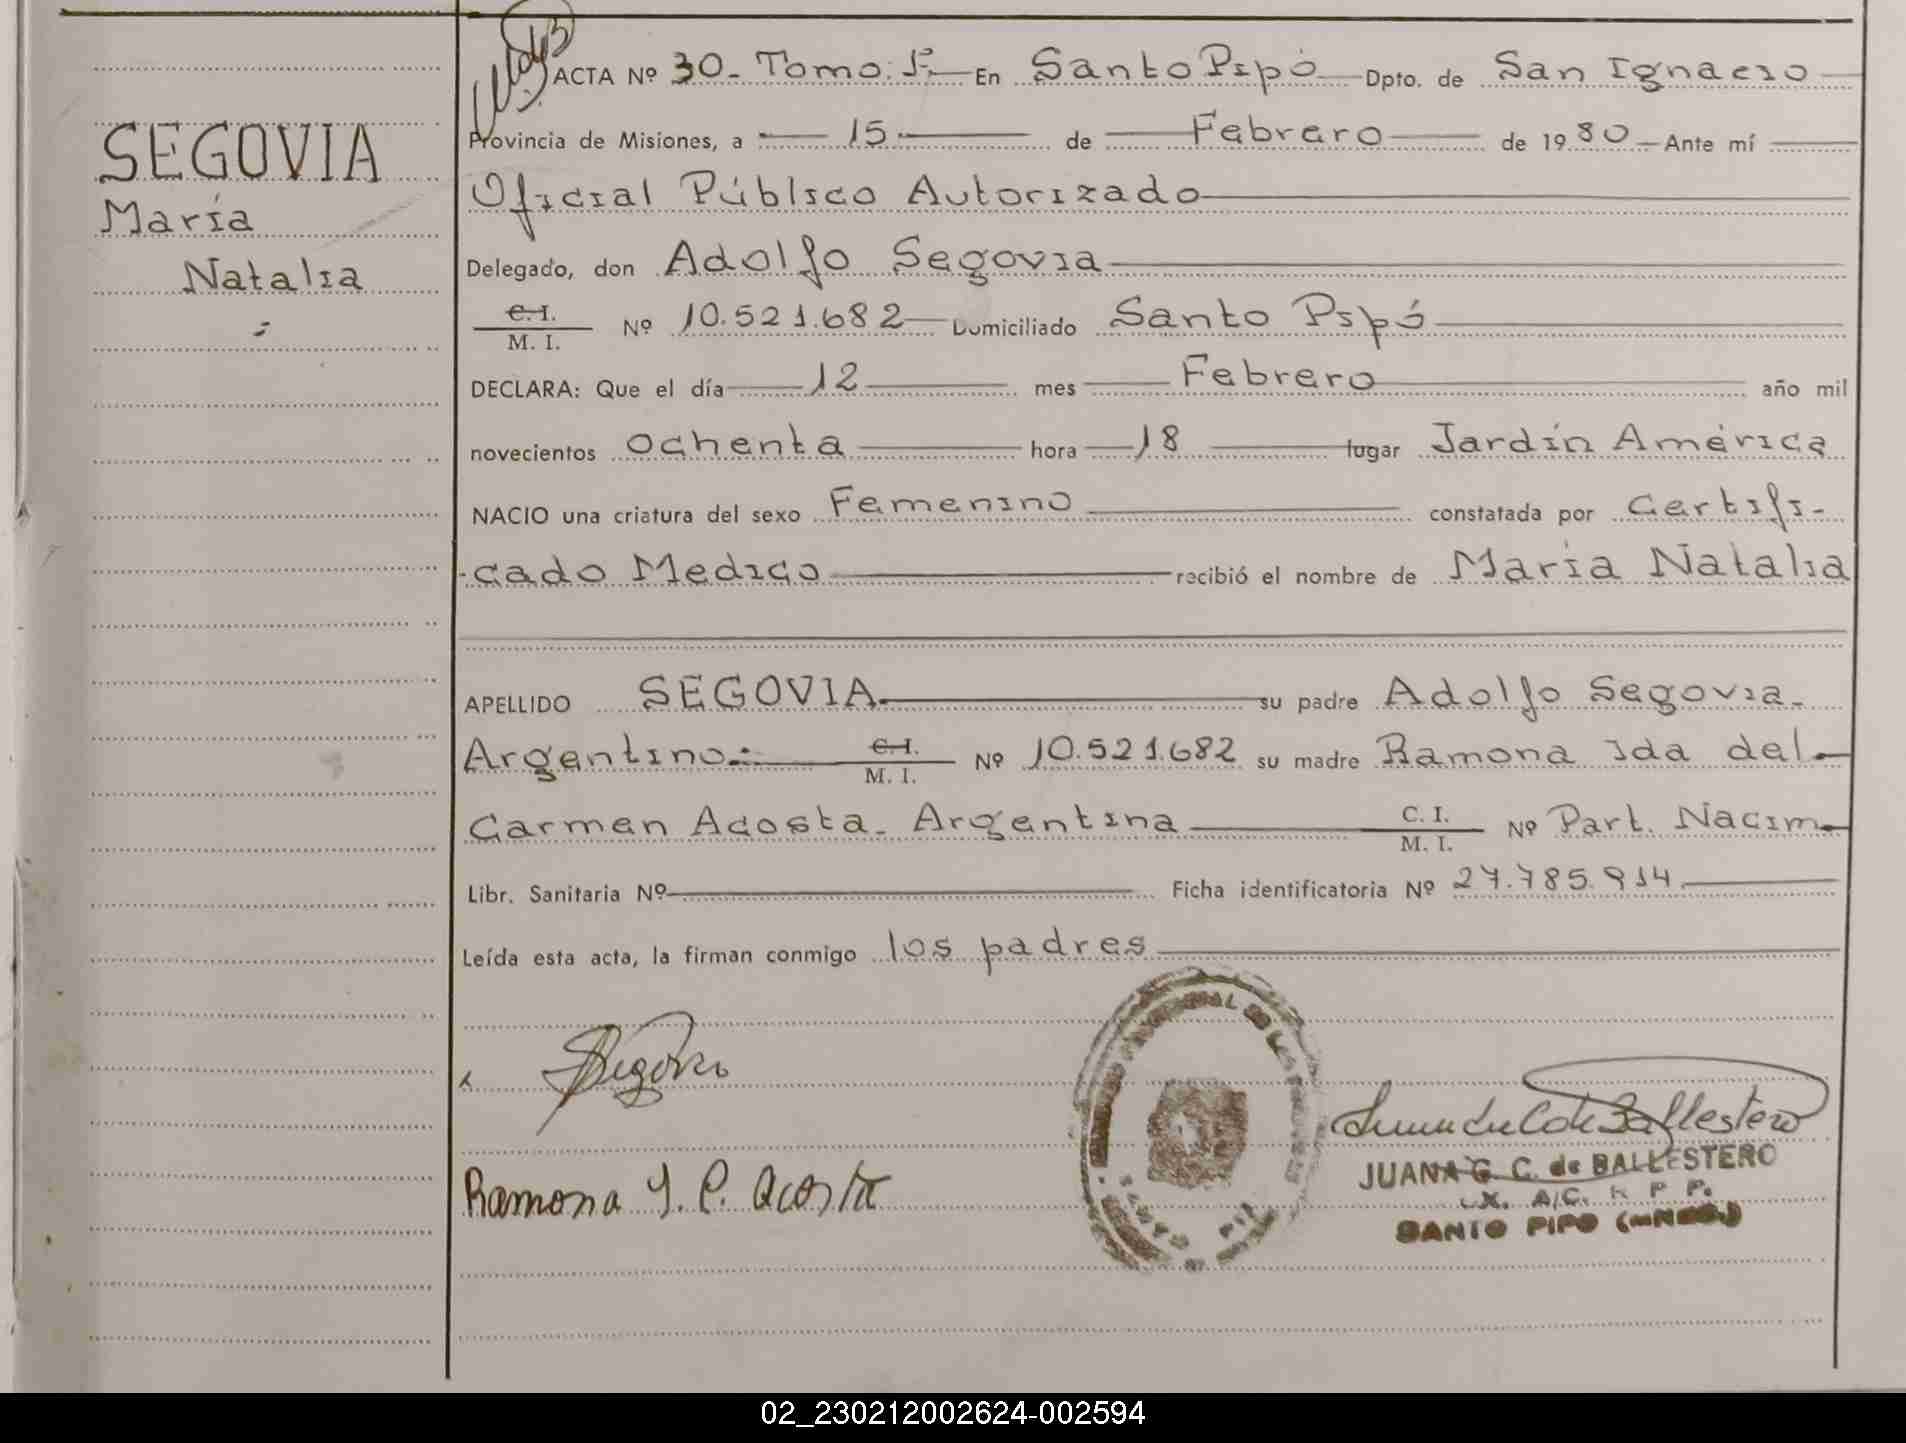 SEGOVIA
María
Natalia
ACTA Nº 30. Tomo: Iº. En Santo Pipó Dpto. de San Ignacio
Provincia de Misiones, a 15 de Febrero de 1980 Ante mí
Oficial Público Autorizado
Delegado, don Adolfo Segovia
C. I.
M. I.
Nº 10.521.682 Domiciliado Santo Pipó
DECLARA: Que el día 12 mes Febrero año mil
novecientos ochenta hora 18 lugar Jardín América
NACIO una criatura del sexo Femenino constatada por Certifi-
-cado Medico recibió el nombre de María Natalia
APELLIDO SEGOVIA. su padre Adolfo Segovia.
Argentino. C. I.
M. I.
Nº 10.521.682 su madre Ramona Ida del
Carmen Acosta. Argentina C. I.
M. I.
Nº Part. Nacim.
Libr. Sanitaria Nº Ficha identificatoria Nº 27.785.914
Leída esta acta, la firman conmigo los padres
Segovia
Ramona I. C. Acosta
JUANA G. C. de BALLESTERO
SANTO PIPO
02_230212002624-002594